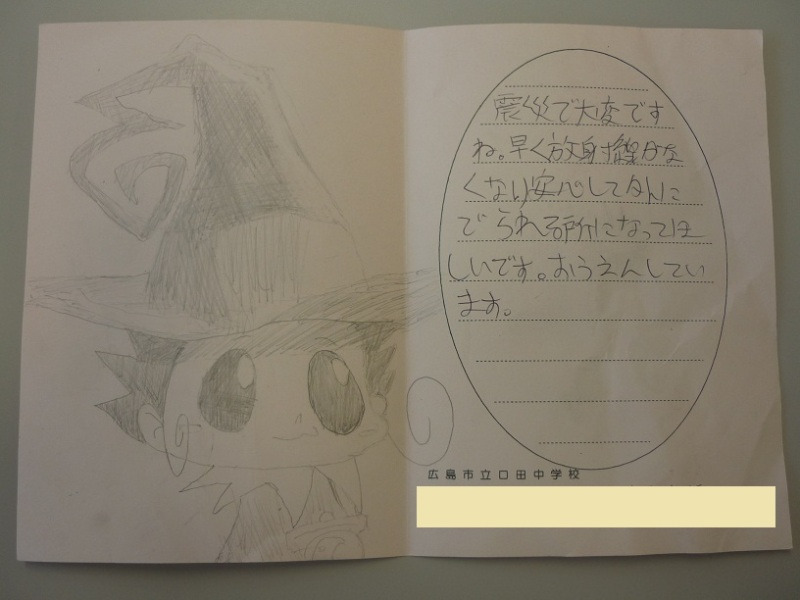 震災で大変です
ね。早く放射能がな
くなり安心してなんに
でられる所になってほ
しいです。おうえんしてい
ます。
広島市立口田中学校